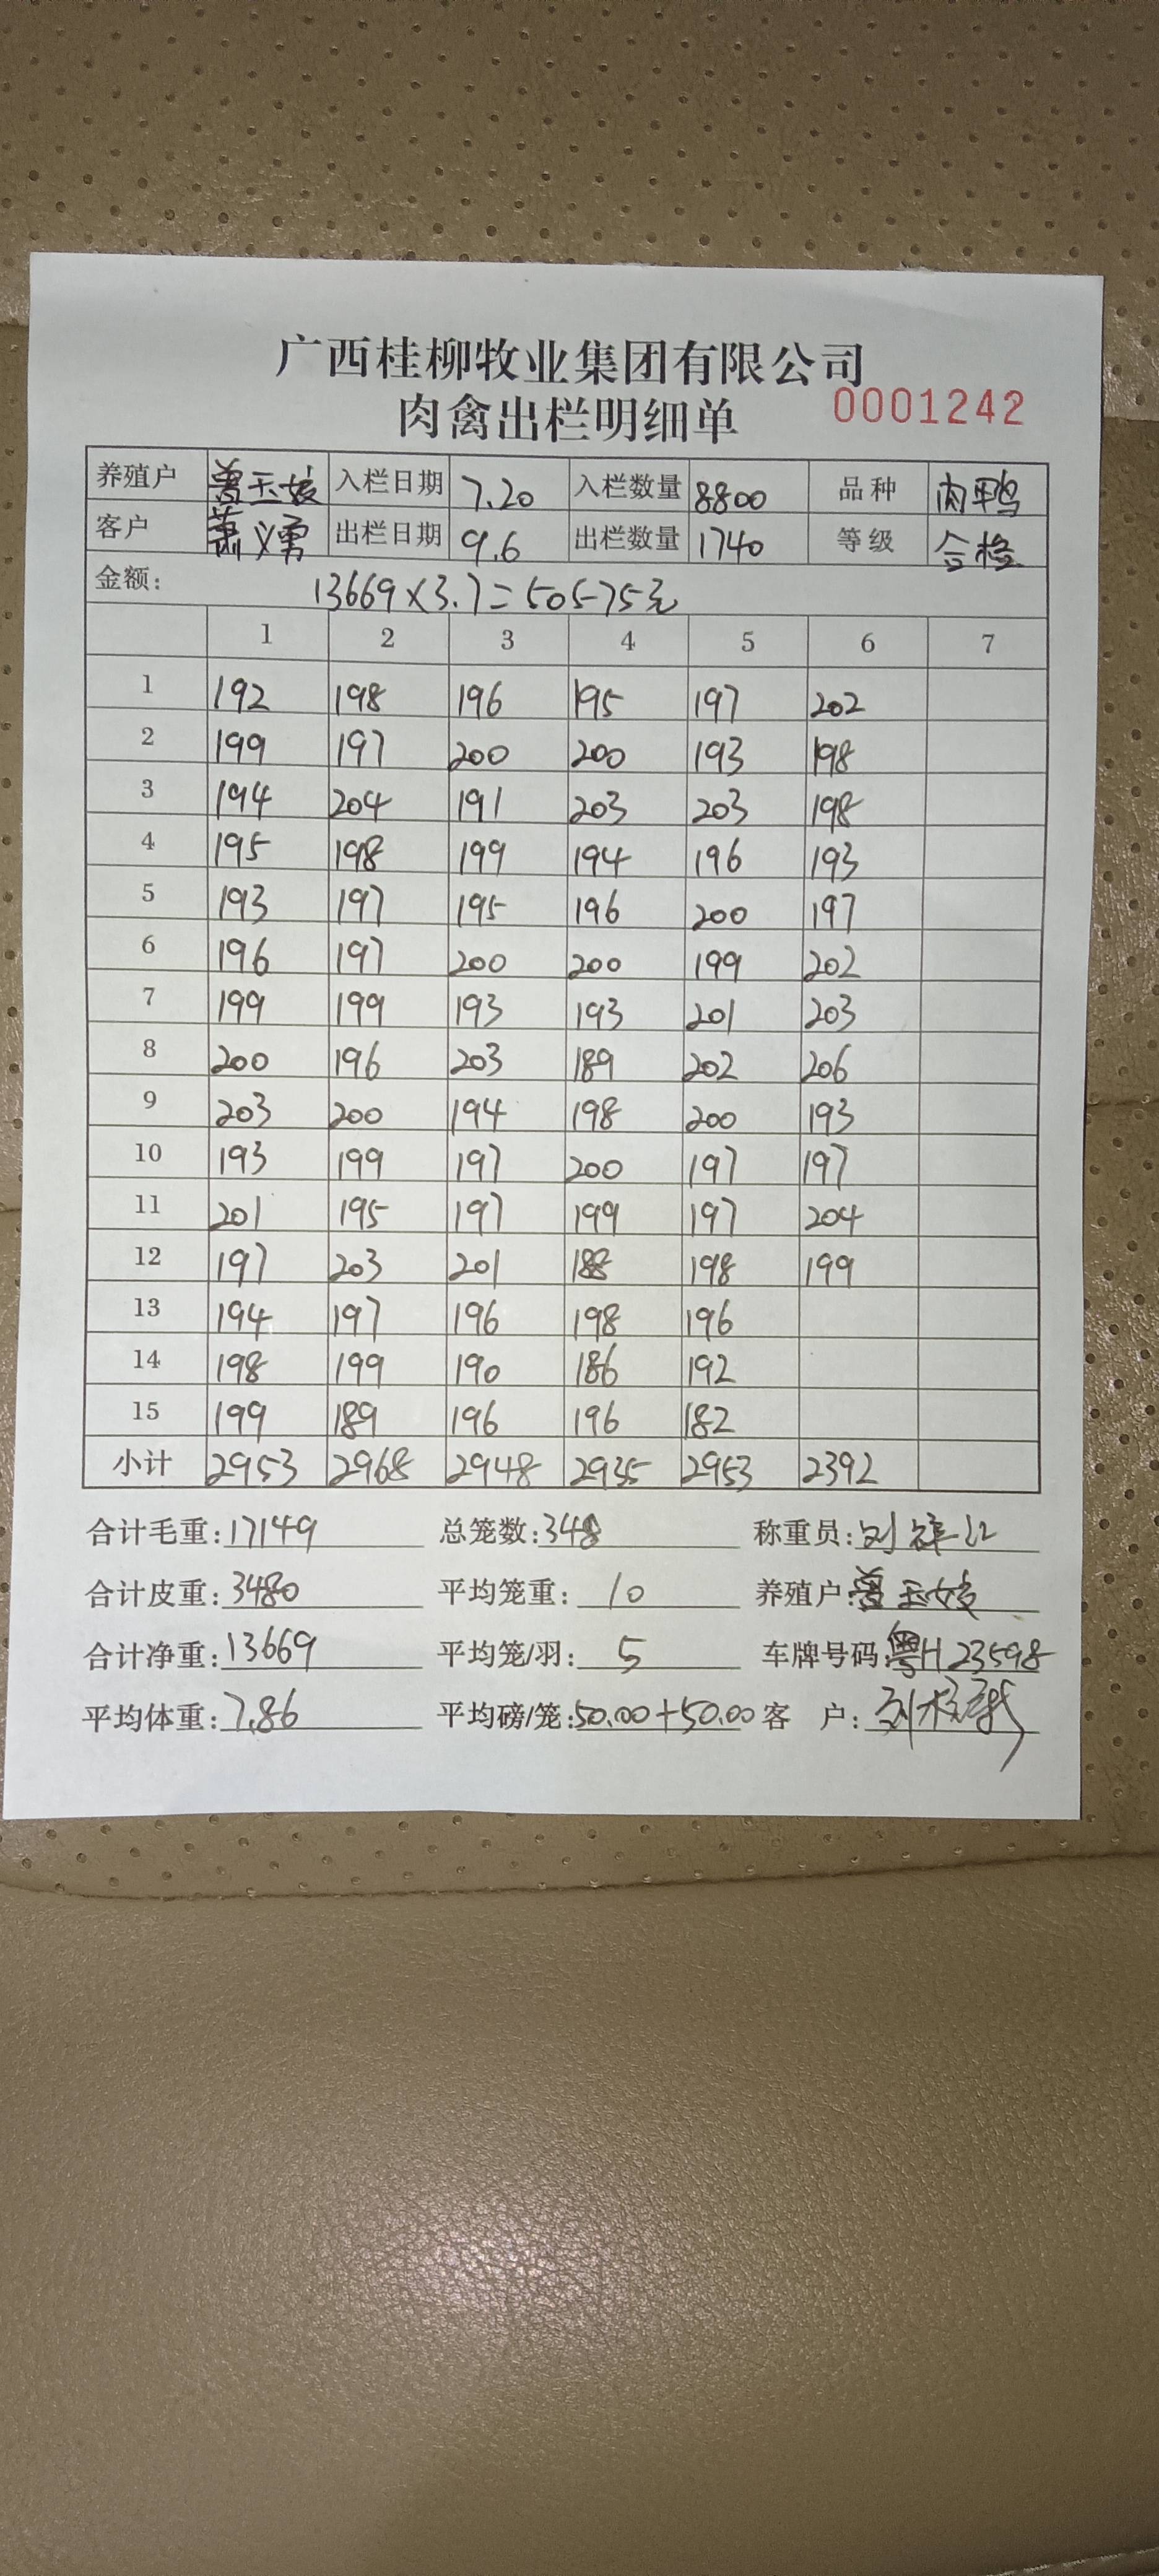 广西桂柳牧业集团有限公司
肉禽出栏明细单 0001242
养殖户 曾玉 入栏日期 7.20 入栏数量 8800 品种 肉鸭
客户 萧义勇 出栏日期 9.6 出栏数量 1740 等级 合格
金额: 13669×3.7=50575元
1 2 3 4 5 6 7
1 192 198 196 195 197 202
2 199 197 200 200 193 198
3 194 204 191 203 203 198
4 195 198 199 194 196 193
5 193 197 195 196 200 197
6 196 197 200 200 199 202
7 199 199 193 193 201 203
8 200 196 203 189 202 206
9 203 200 194 198 200 193
10 193 199 197 200 197 197
11 201 195 197 199 197 204
12 197 203 201 188 198 199
13 194 197 196 198 196
14 198 199 190 186 192
15 199 189 196 196 182
小计 2953 2968 2948 2935 2953 2392
合计毛重:17149 总笼数:348 称重员:刘
合计皮重:3480 平均笼重:10 养殖户:曾玉
合计净重:13669 平均笼/羽:5 车牌号码:粤H23598
平均体重:7.86 平均磅/笼:50.00+50.00 客户: